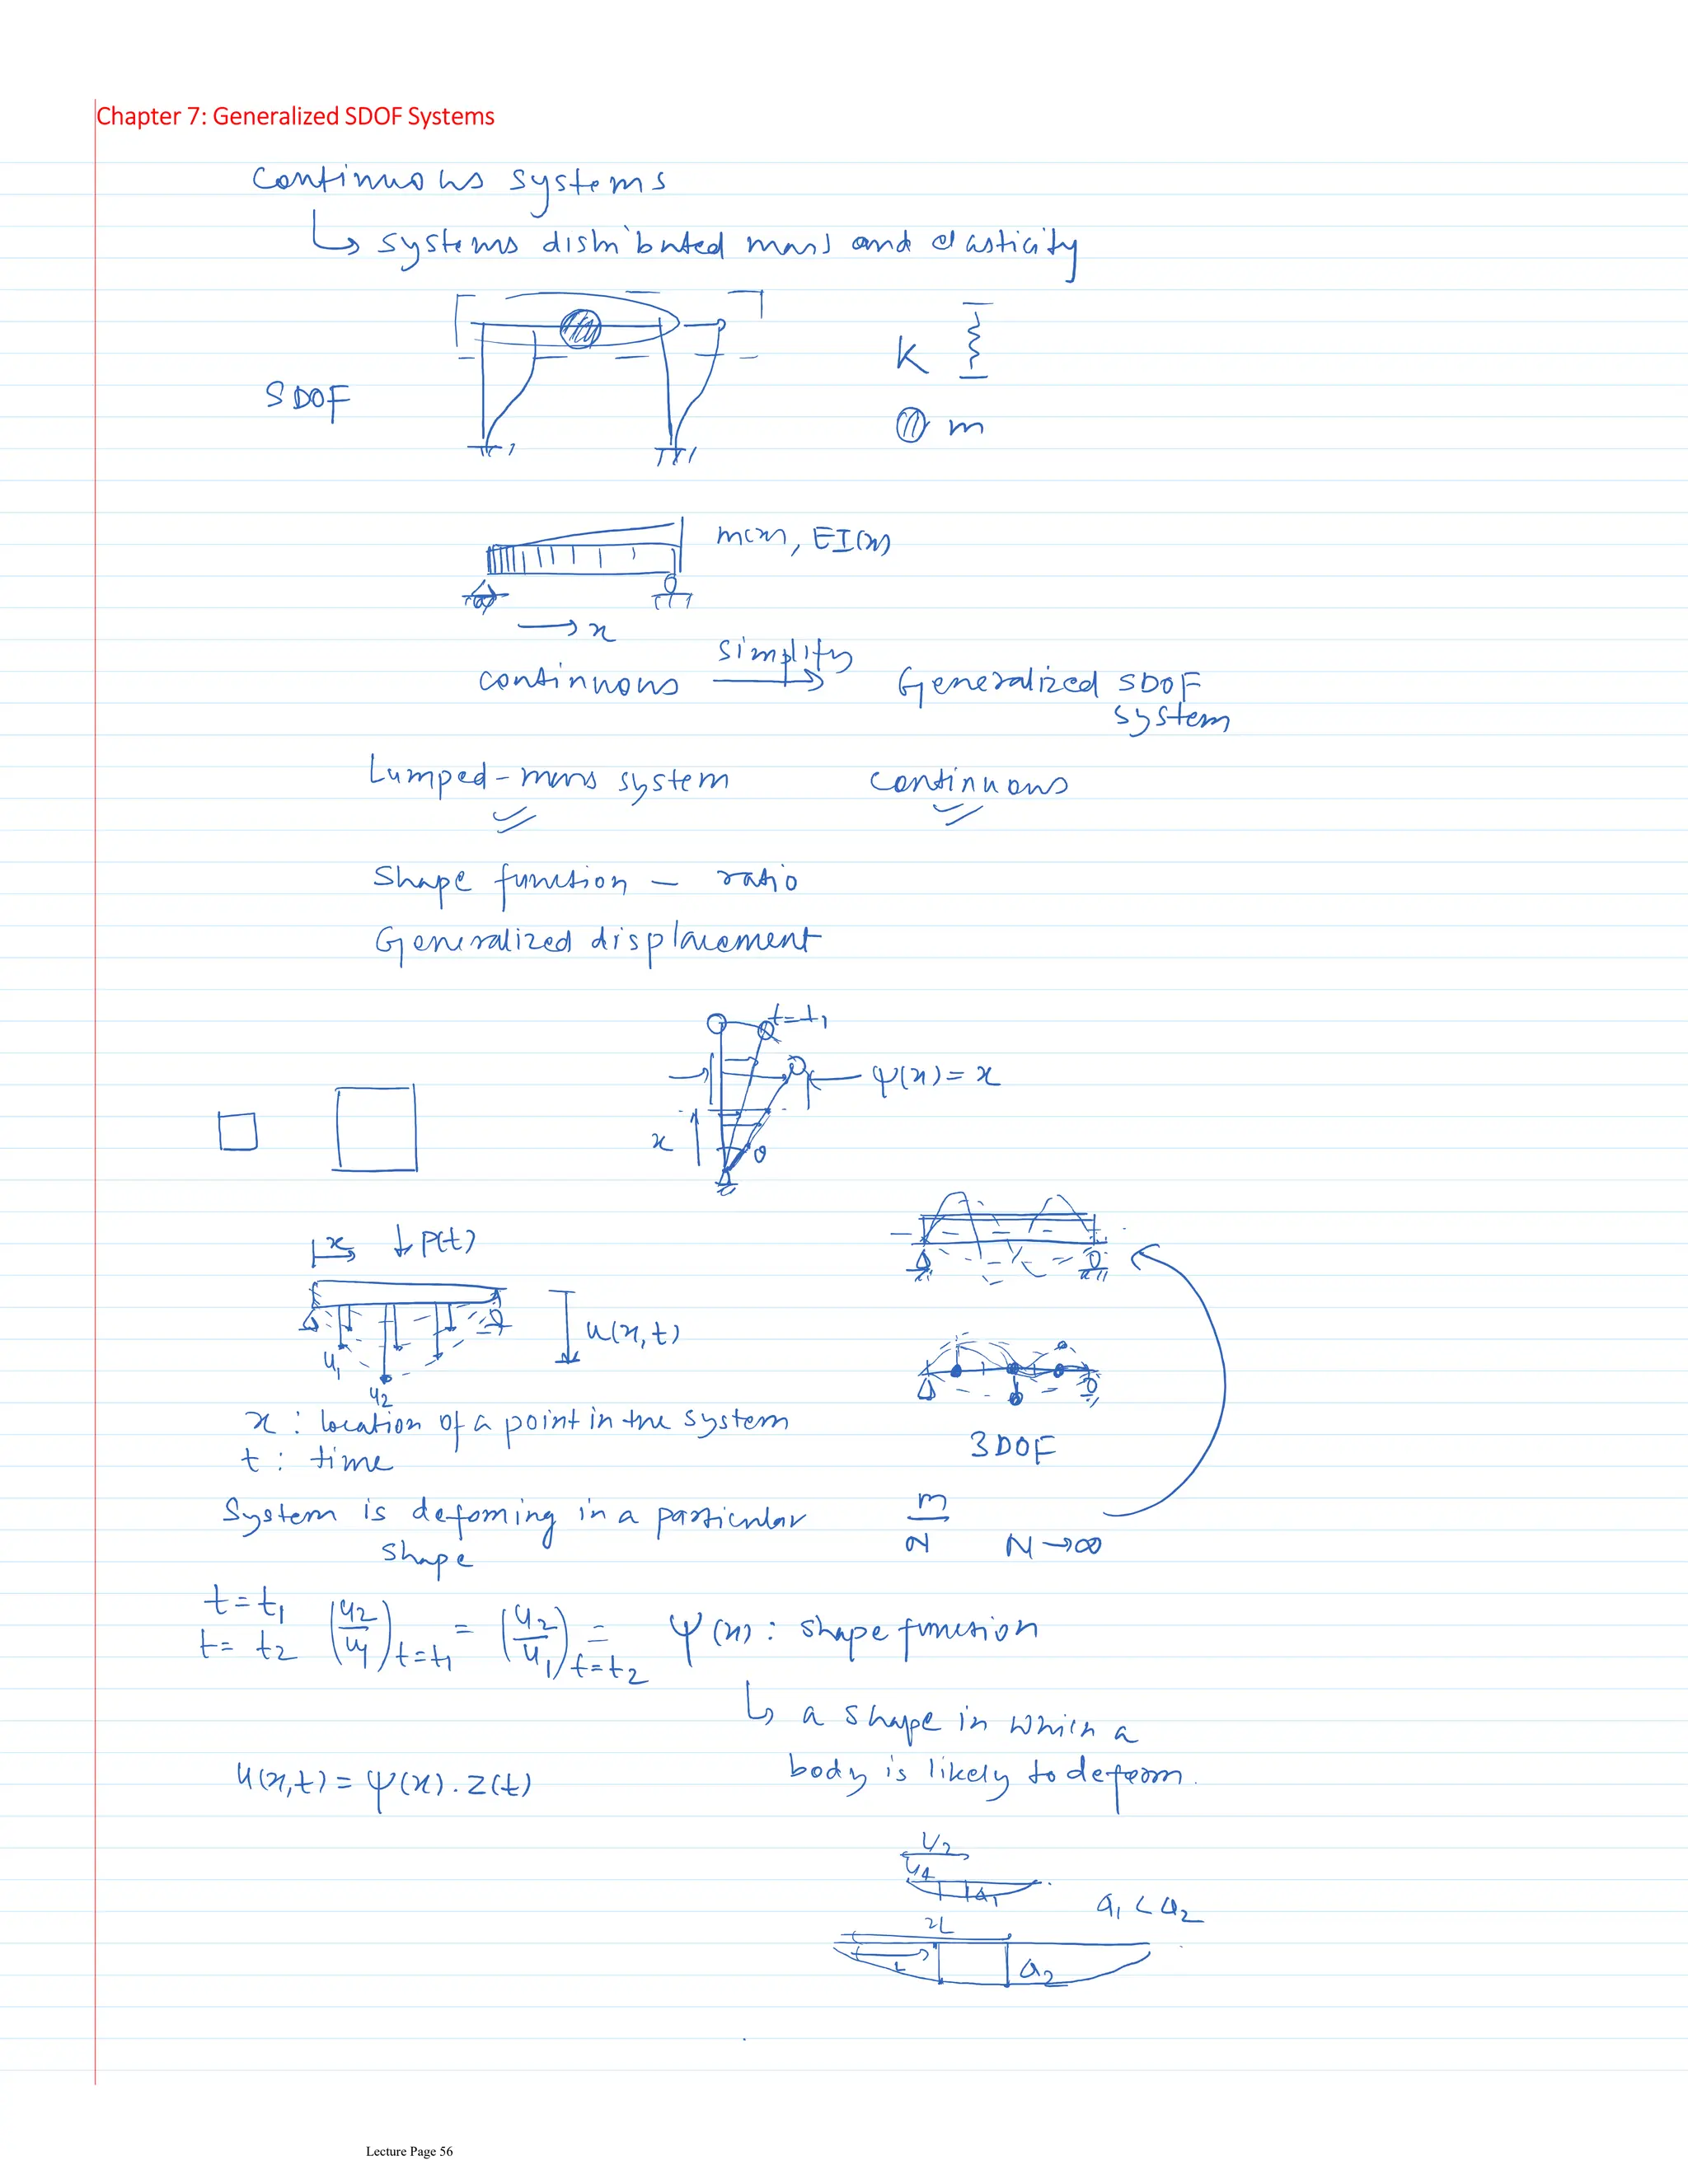 Chapter 7: Generalized SDOF Systems
Continuous systems
↳ systems distributed mass and elasticity
SDOF
K
m
m(x), EI(x)
→ x
simplify
continuous → Generalized SDOF
system
Lumped-mass system continuous
Shape function – ratio
Generalized displacement
t=t1
ψ(x) = x
x
θ
x ↓ P(t)
u(x,t)
u1
u2
x : location of a point in the system
t : time
3DOF
System is defoming in a particular
shape
m/N N→∞
t = t1
t = t2 (u2/u1)t=t1 = (u2/u1)t=t2 = ψ(x) : shape function
↳ a shape in which a
body is likely to deform.
u(x,t) = ψ(x). z(t)
a1
a1 < a2
2L
L
a2
Lecture Page 56